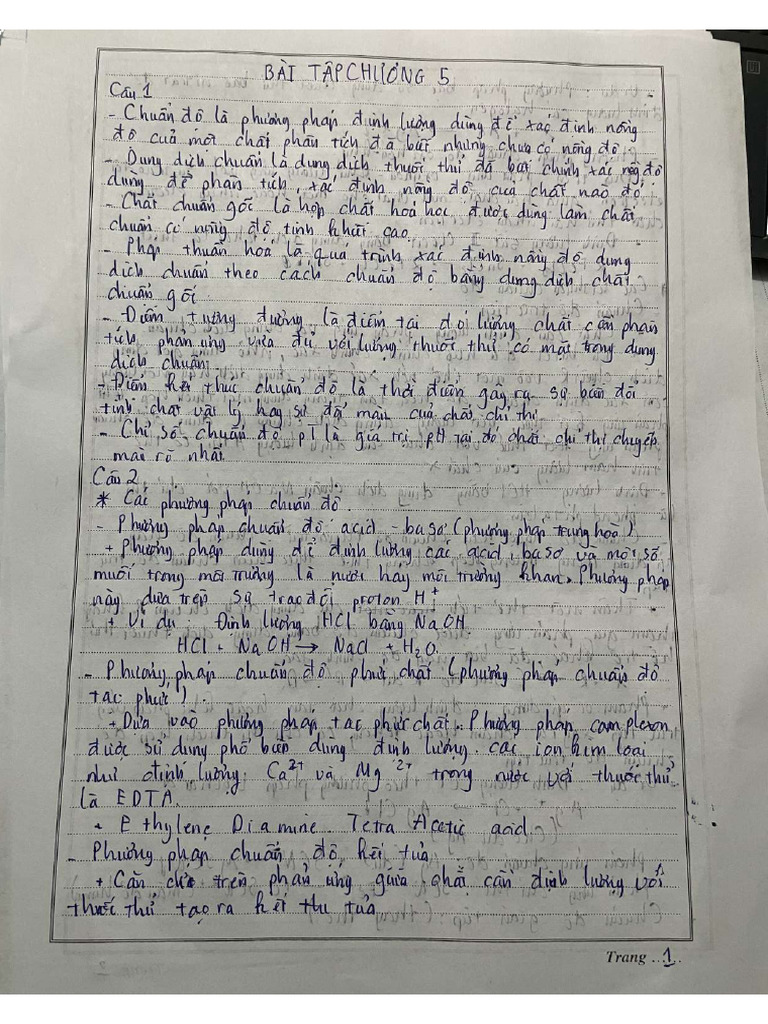 BÀI TẬP CHƯƠNG 5
Câu 1
- Chuẩn độ là phương pháp định lượng dùng để xác định nồng
độ của một chất phân tích đã biết nhưng chưa có nồng độ.
- Dung dịch chuẩn là dung dịch thuốc thử đã biết chính xác nồng độ
dùng để phân tích, xác định nồng độ của chất nào đó.
- Chất chuẩn gốc là hợp chất hoá học được dùng làm chất
chuẩn có nồng độ tinh khiết cao.
- Phép thuẩn hoá là quá trình xác định nồng độ dung
dịch chuẩn theo cách chuẩn độ bằng dung dịch chất
chuẩn gốc.
- Điểm tương đương là điểm tại đó lượng chất cần phân
tích phản ứng vừa đủ với lượng thuốc thử có mặt trong dung
dịch chuẩn.
- Điểm kết thúc chuẩn độ là thời điểm gây ra sự biến đổi
tính chất vật lý hay sự đổi màu của chất chỉ thị
- Chỉ số chuẩn độ pT là giá trị pH tại đó chất chỉ thị chuyển
màu rõ nhất
Câu 2
* Các phương pháp chuẩn độ.
- Phương pháp chuẩn độ acid - base (phương pháp trung hoà)
+ Phương pháp dùng để định lượng các acid, base và một số
muối trong môi trường là nước hay môi trường khan. Phương pháp
này dựa trên sự trao đổi proton H⁺
+ Ví dụ: Định lượng HCl bằng NaOH.
HCl + NaOH → NaCl + H₂O.
- Phương pháp chuẩn độ phức chất (phương pháp chuẩn độ
tạo phức)
+ Dựa vào phương pháp tạo phức chất. Phương pháp complexon
được sử dụng phổ biến dùng định lượng các ion kim loại
như định lượng Ca²⁺ và Mg²⁺ trong nước với thuốc thử
là EDTA.
+ Ethylene Diamine Tetra Acetic acid.
- Phương pháp chuẩn độ kết tủa
+ Căn cứ trên phản ứng giữa chất cần định lượng với
thuốc thử tạo ra kết thu tủa
Trang ..1..